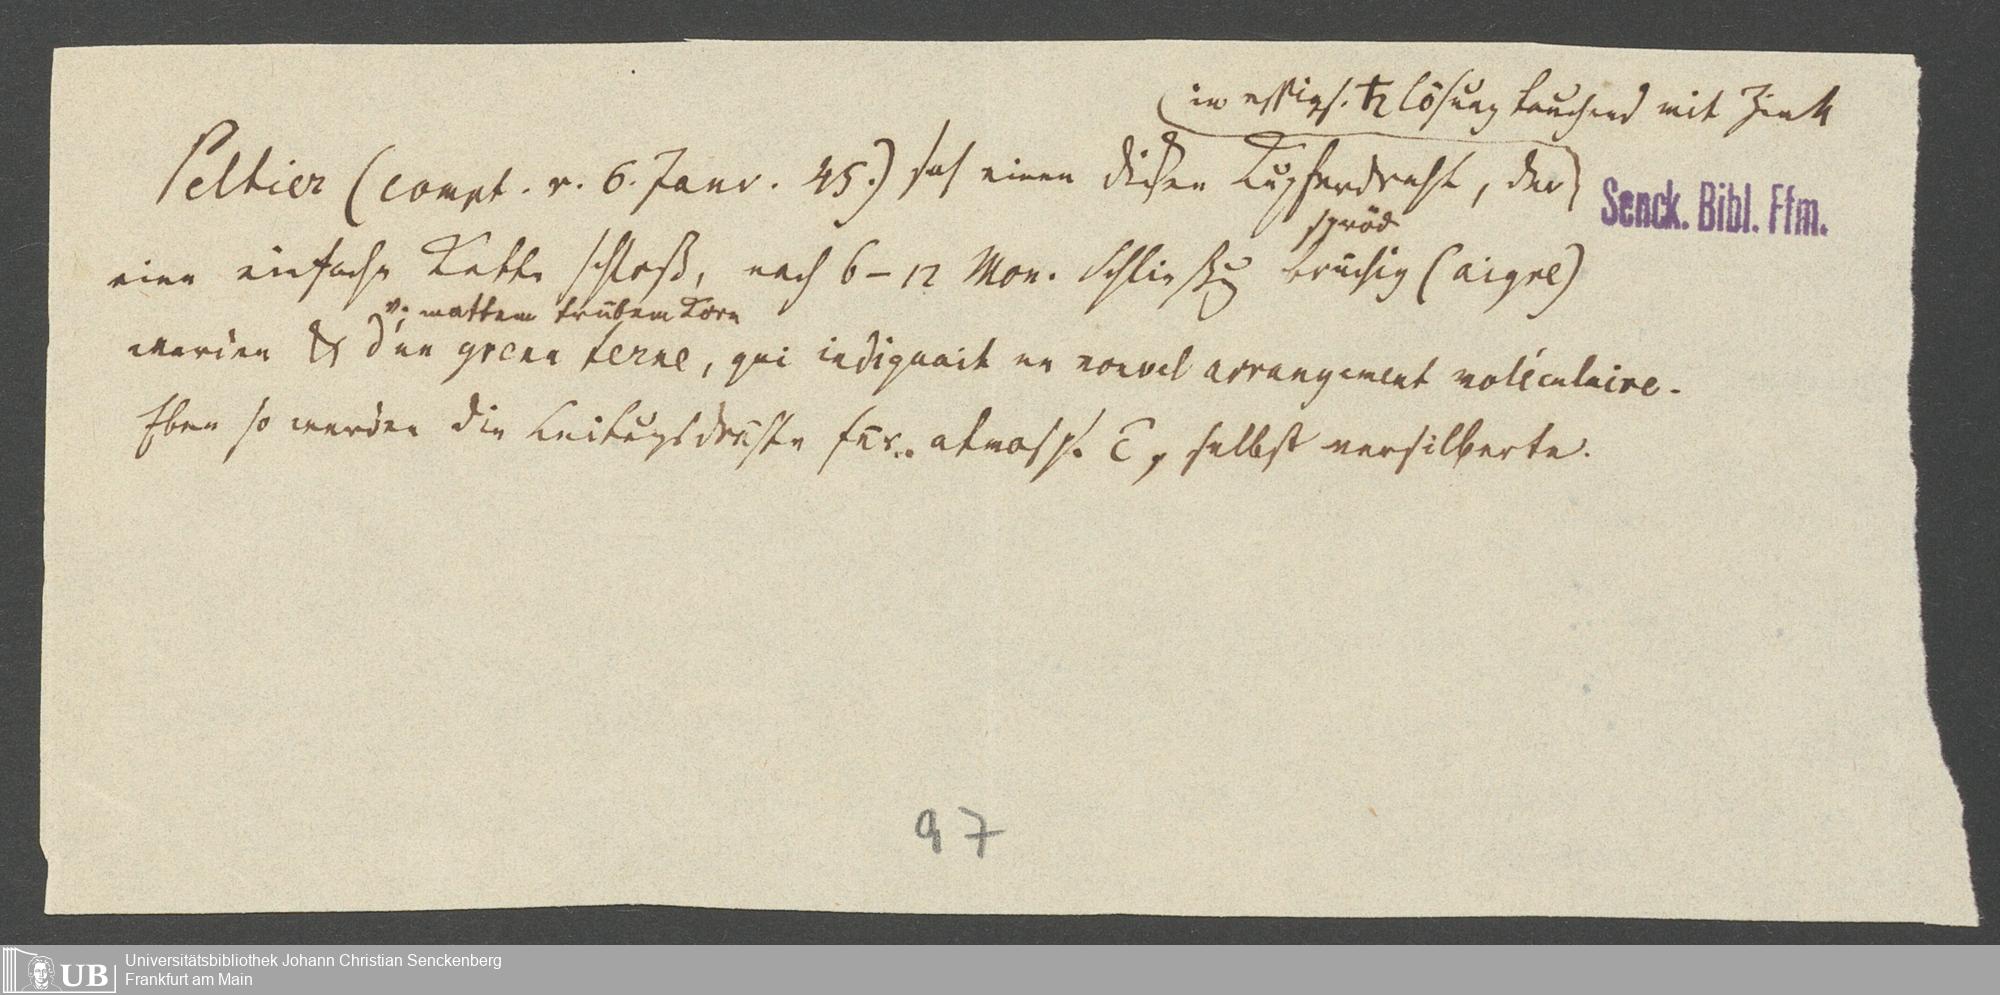 in essigs. ♄ lösung tauchend mit Zink
Peltier (compt. r. 6. Janr. 45.) sah einen dicken Kupferdraht, der
Senck. Bibl. Ffm.
spröd
eine einfache Kette schloß, nach 6 – 12 Mon. Schließg brüchig (aigre)
v. mattem trübem Korn
werden & d'un grena terne, qui indiquait un nouvel arrangement moléculaire.
Eben so werden die Leitungsdrähte für atmosph. E, selbst versilberte.
97
UB
Universitätsbibliothek Johann Christian Senckenberg
Frankfurt am Main